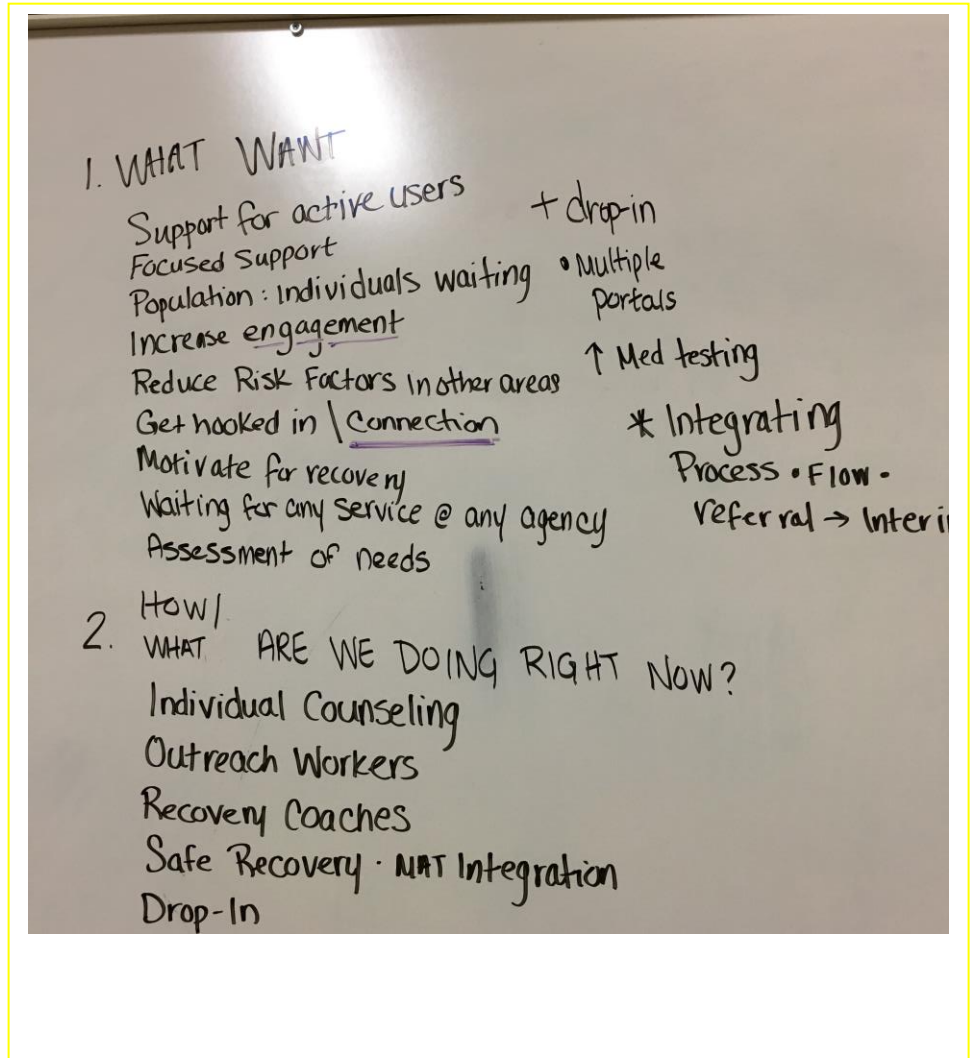 1. WHAT WANT
Support for active users
Focused Support
Population: Individuals waiting
Increase engagement
Reduce Risk Factors In other areas
Get hooked in \ Connection
Motivate for recovery
Waiting for any service @ any agency
Assessment of needs
+ drop-in
• Multiple
portals
↑ Med testing
* Integrating
Process • Flow •
referral → Interi
2. HOW/
WHAT ARE WE DOING RIGHT NOW?
Individual Counseling
Outreach Workers
Recovery Coaches
Safe Recovery · MAT Integration
Drop-In